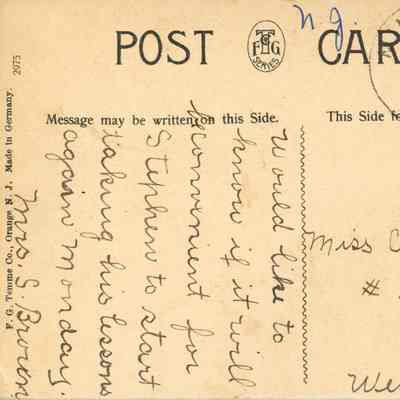 N.J.
POST CAR
F T G
SERIES
Message may be written on this Side.
This Side fo
2075
F. G. Temme Co., Orange N. J. Made in Germany.
Would like to
know if it will
convinient for
Stephen to start
taking his lessons
again Monday.
Mrs. S. Brown
Miss C
#
We